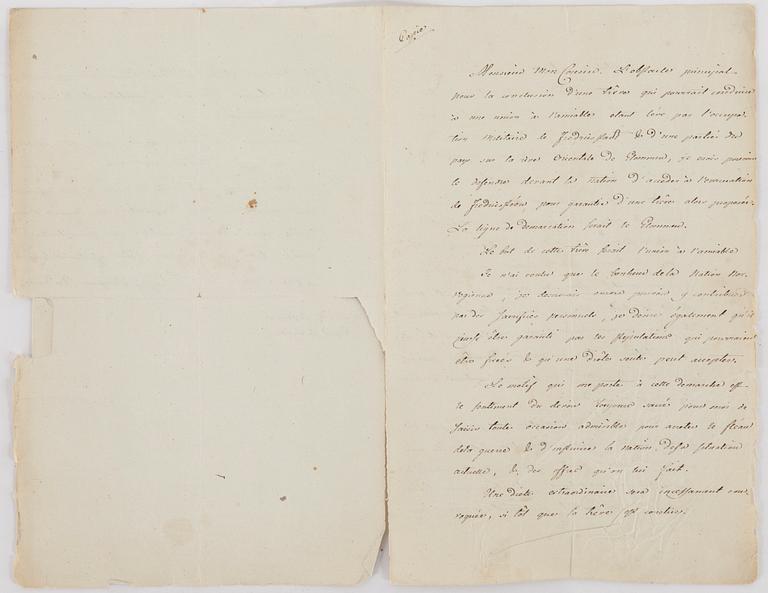 Copie
Monsieur Mon Cousin. L'obstacle principal
pour la conclusion d'une trêve qui pourrait conduire
à une union à l'amiable etant levé par l'occupa-
tion militaire de Fredricstad & d'une partie du
pays sur la rive Orientale de Glommen, je crois pouvoir
le defendre devant la Nation d'acceder à l'evacuation
de Fredricsteen pour garantie d'une trêve alors proposée.
La ligne de demarcation serait le Glommen.
Le but de cette trêve serait l'union à l'amiable
Je n'ai voulu que le bonheur de la Nation Nor-
vegienne, je desirerais encore pouvoir y contribuer
par des sacrifices personnels, je désire également qu'il
puisse être garanti par les stipulations qui pourraient
être fixées & qu'une diète seule peut accepter.
Le motif qui me porte à cette demarche est
le sentiment du devoir toujours sacré pour moi de
saisir toute occasion admissible pour arreter le fléau
de la guerre & d'instruire la nation de sa situation
actuelle, & des offres qu'on lui fait.
Une diète extraordinaire sera incessamment con-
voquée, si tôt que la trêve est conclue.